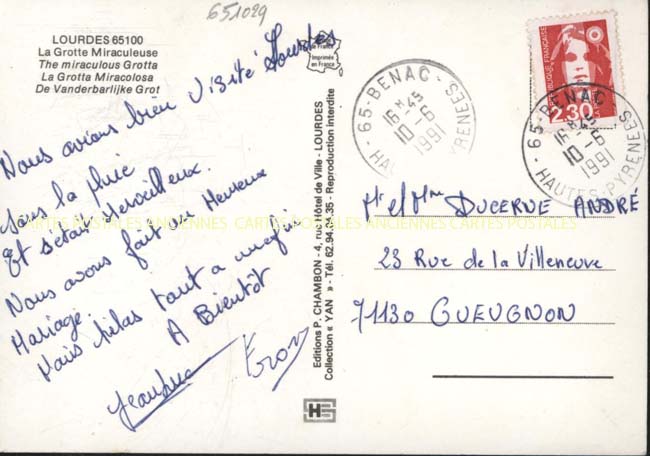 651029
LOURDES 65100
La Grotte Miraculeuse
The miraculous Grotta
La Grotta Miracolosa
De Vanderbarlijke Grot
de France
Imprimée
en France
Nous avions bien visité Lourdes
sous la pluie
Et s'était Merveilleux.
Nous avons fait de Heureux
Mariage.
Mais hélas tout a une fin
A Bientôt
Editions P. CHAMBON - 4, rue Hôtel de Ville - LOURDES
Collection « YAN » - Tél. 62.94.34.35 - Reproduction interdite
HS
65-BENAC
16H45
10-6
1991
HAUTES-PYRENEES
RÉPUBLIQUE FRANÇAISE
2,30
65-BENAC
16H45
10-6
1991
HAUTES-PYRENEES
Mr et Mme DUCERNE ANDRÉ
23 Rue de la Villeneuve
71130 GUEUGNON
CARTES POSTALES ANCIENNES CARTES POSTALES ANCIENNES CARTES POSTALES